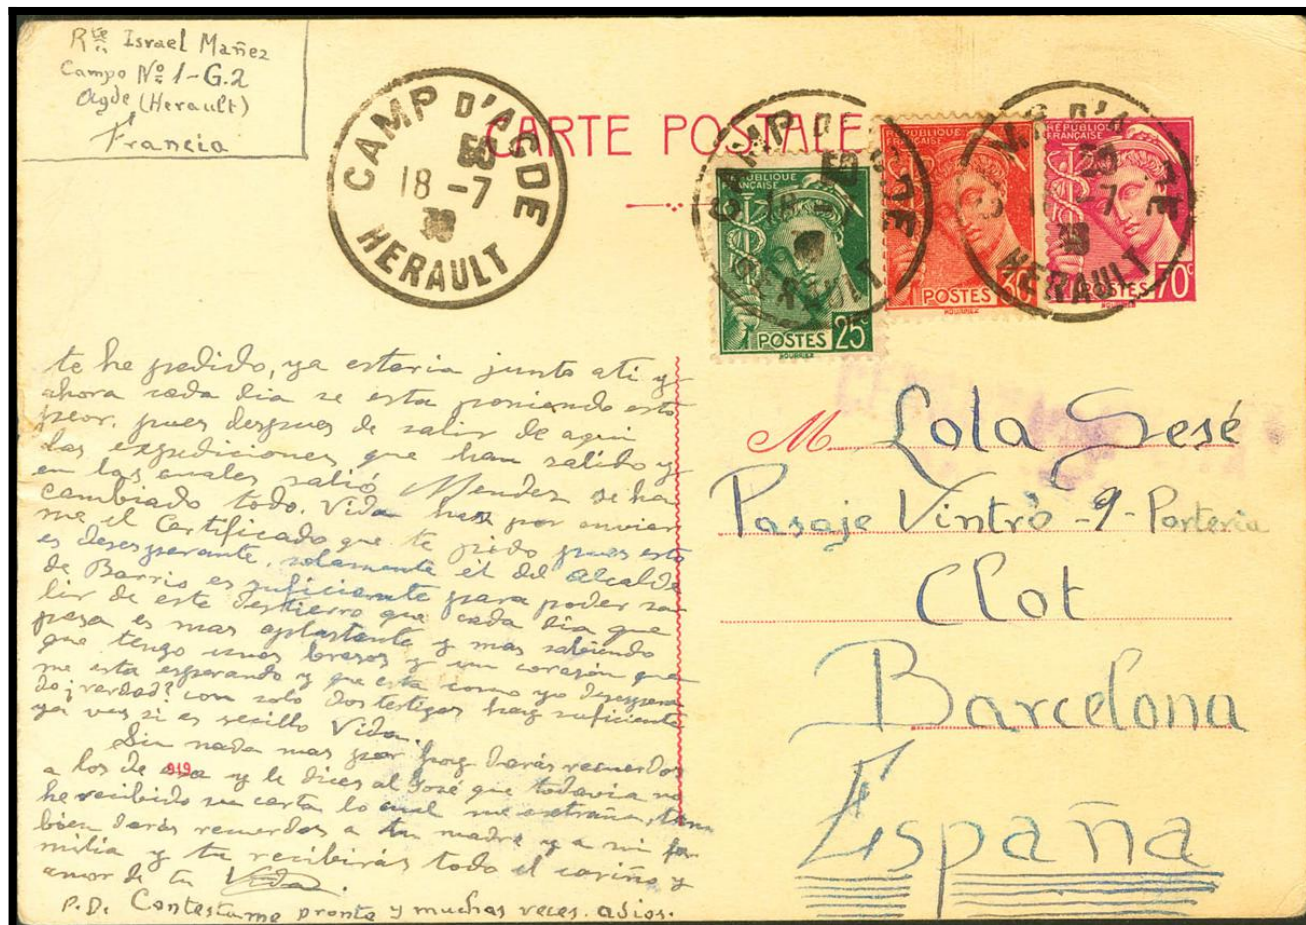 Rte Israel Mañez
Campo Nº 1-G.2
Agde (Herault)
Francia
CAMP D'AGDE
18 -7
HERAULT
CARTE POSTALE
REPUBLIQUE
FRANÇAISE
POSTES 25c
REPUBLIQUE
FRANÇAISE
POSTES 30c
REPUBLIQUE
FRANÇAISE
POSTES 70c
te he pedido, ya estaria junto ati y
ahora cada dia se esta poniendo esto
peor, pues despues de salir de aqui
las expediciones que han salido y
en las cuales salió Mendez se ha
cambiado todo. Vida haz por enviar
me el Certificado que te pido pues esto
es desesperante, solamente el del alcalde
de Barrio es suficiente para poder sa
lir de este destierro que cada dia que
pasa es mas aplastante y mas sabiendo
que tengo unos brazos y un corazón que
me esta esperando y que esta como yo desespera
do ¿verdad? con solo dos testigos hay suficiente
ya ves si es secillo Vida.
Sin nada mas por hoy darás recuerdos
a los de esa y le dices al José que todavia no
he recibido su carta lo cual me extraña, tam
bien darás recuerdos a tu madre y a mi fa
milia y tu recibirás todo el cariño y
amor de tu Vida.
P.D. Contestame pronto y muchas veces. adios.
919
M. Lola Sesé
Pasaje Vintró -9- Porteria
Clot
Barcelona
España